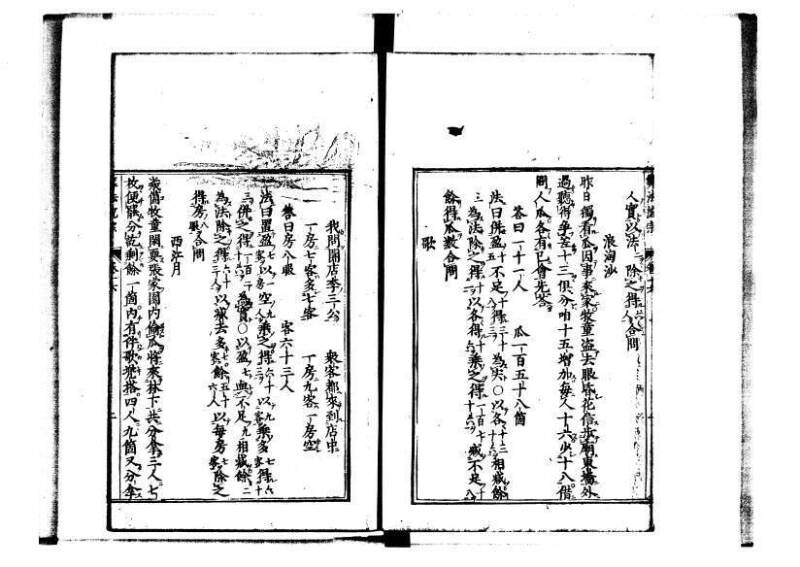 人實以法除之得人合問
浪淘沙
昨日獨看瓜因事來家牧童盜去眼昏花信步廟東墻外
過聽得爭差十三俱分咱十五增加每人十六少十八借
問人瓜各有已會先答
答曰一十一人 瓜一百五十八箇
法曰併盈五十不足八十得三十為實○以各三十相減餘
三為法除之得一十以各得十乘之得一百七十減不足八十
餘得瓜數合問
歌
我問開店李三公 衆客都來到店中
一房七客多七客 一房九客一房空
答曰房八眼 客六十三人
法曰置盈七以一空九乘之得六十三以九乘多七得六十
三併之得一百二十六為實○以盈七與不足九相減餘二
為法除之得六十三人以減去多七餘五十六人以每房七客除之
得房八眼合問
西江月
幾箇牧童閑耍張家園內偷瓜將來林下共分拿三人七
枚便罷分訖剩餘一箇內有伴歌兜搭四人九箇又分拿